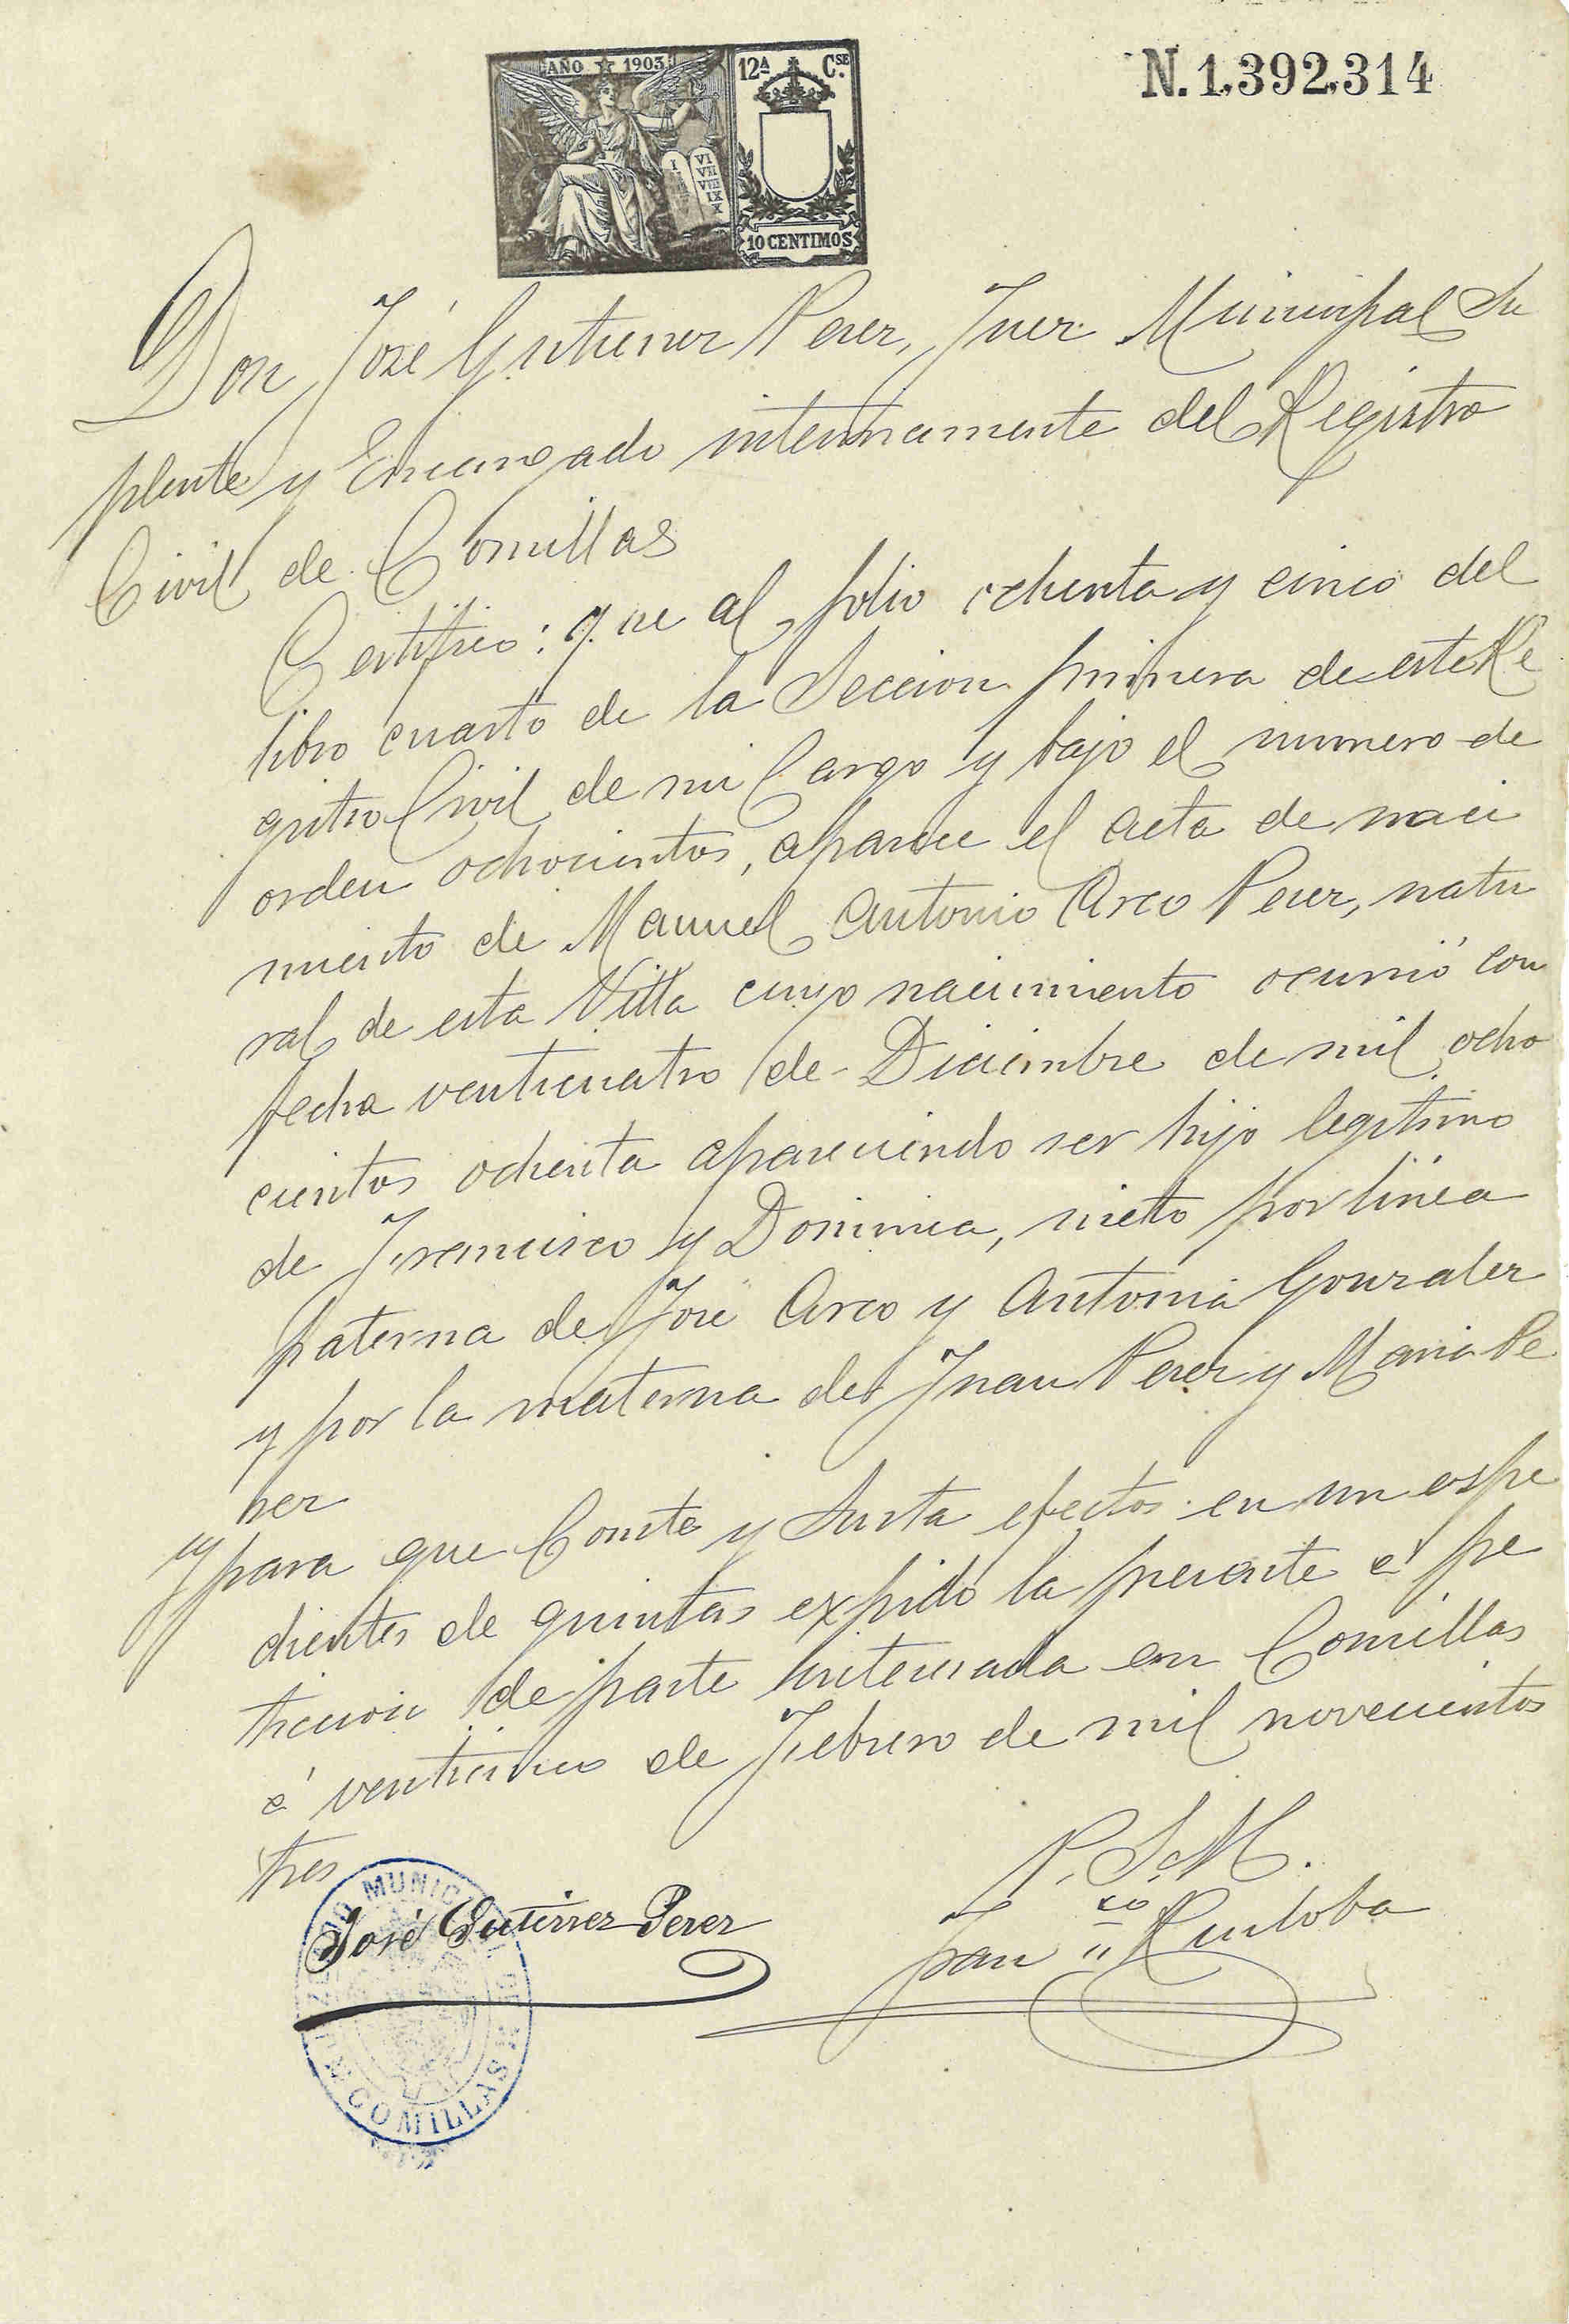 AÑO 1903
12ª Cˢᴱ.
I VI VII VIII IX X
10 CENTIMOS
N. 1,392,314
Don José Gutierrez Perez, Juez Municipal Su
plente y Encargado interinamente del Registro
Civil de Comillas
Certifico: que al folio ochenta y cinco del
libro cuarto de la Seccion primera de este Re
gistro Civil de mi Cargo y bajo el numero de
orden ochocientos, aparece el acta de naci
miento de Manuel Antonio Arco Perez, natu
ral de esta Villa cuyo nacimiento ocurrió con
fecha venticuatro de Diciembre de mil ocho
cientos ochenta apareciendo ser hijo legitimo
de Francisco y Dominica, nieto por linea
paterna de José Arco y Antonia Gonzalez
y por la materna de Juan Perez y Maria Pe
rez
y para que Conste y Surta efectos en un espe
dientes de quintas expido la presente á pe
ticion de parte interesada en Comillas
á venticinco de Febrero de mil novecientos
tres
P. S. M.
José Gutierrez Perez
Franᶜᵒ
JUZGADO MUNICIPAL DE COMILLAS